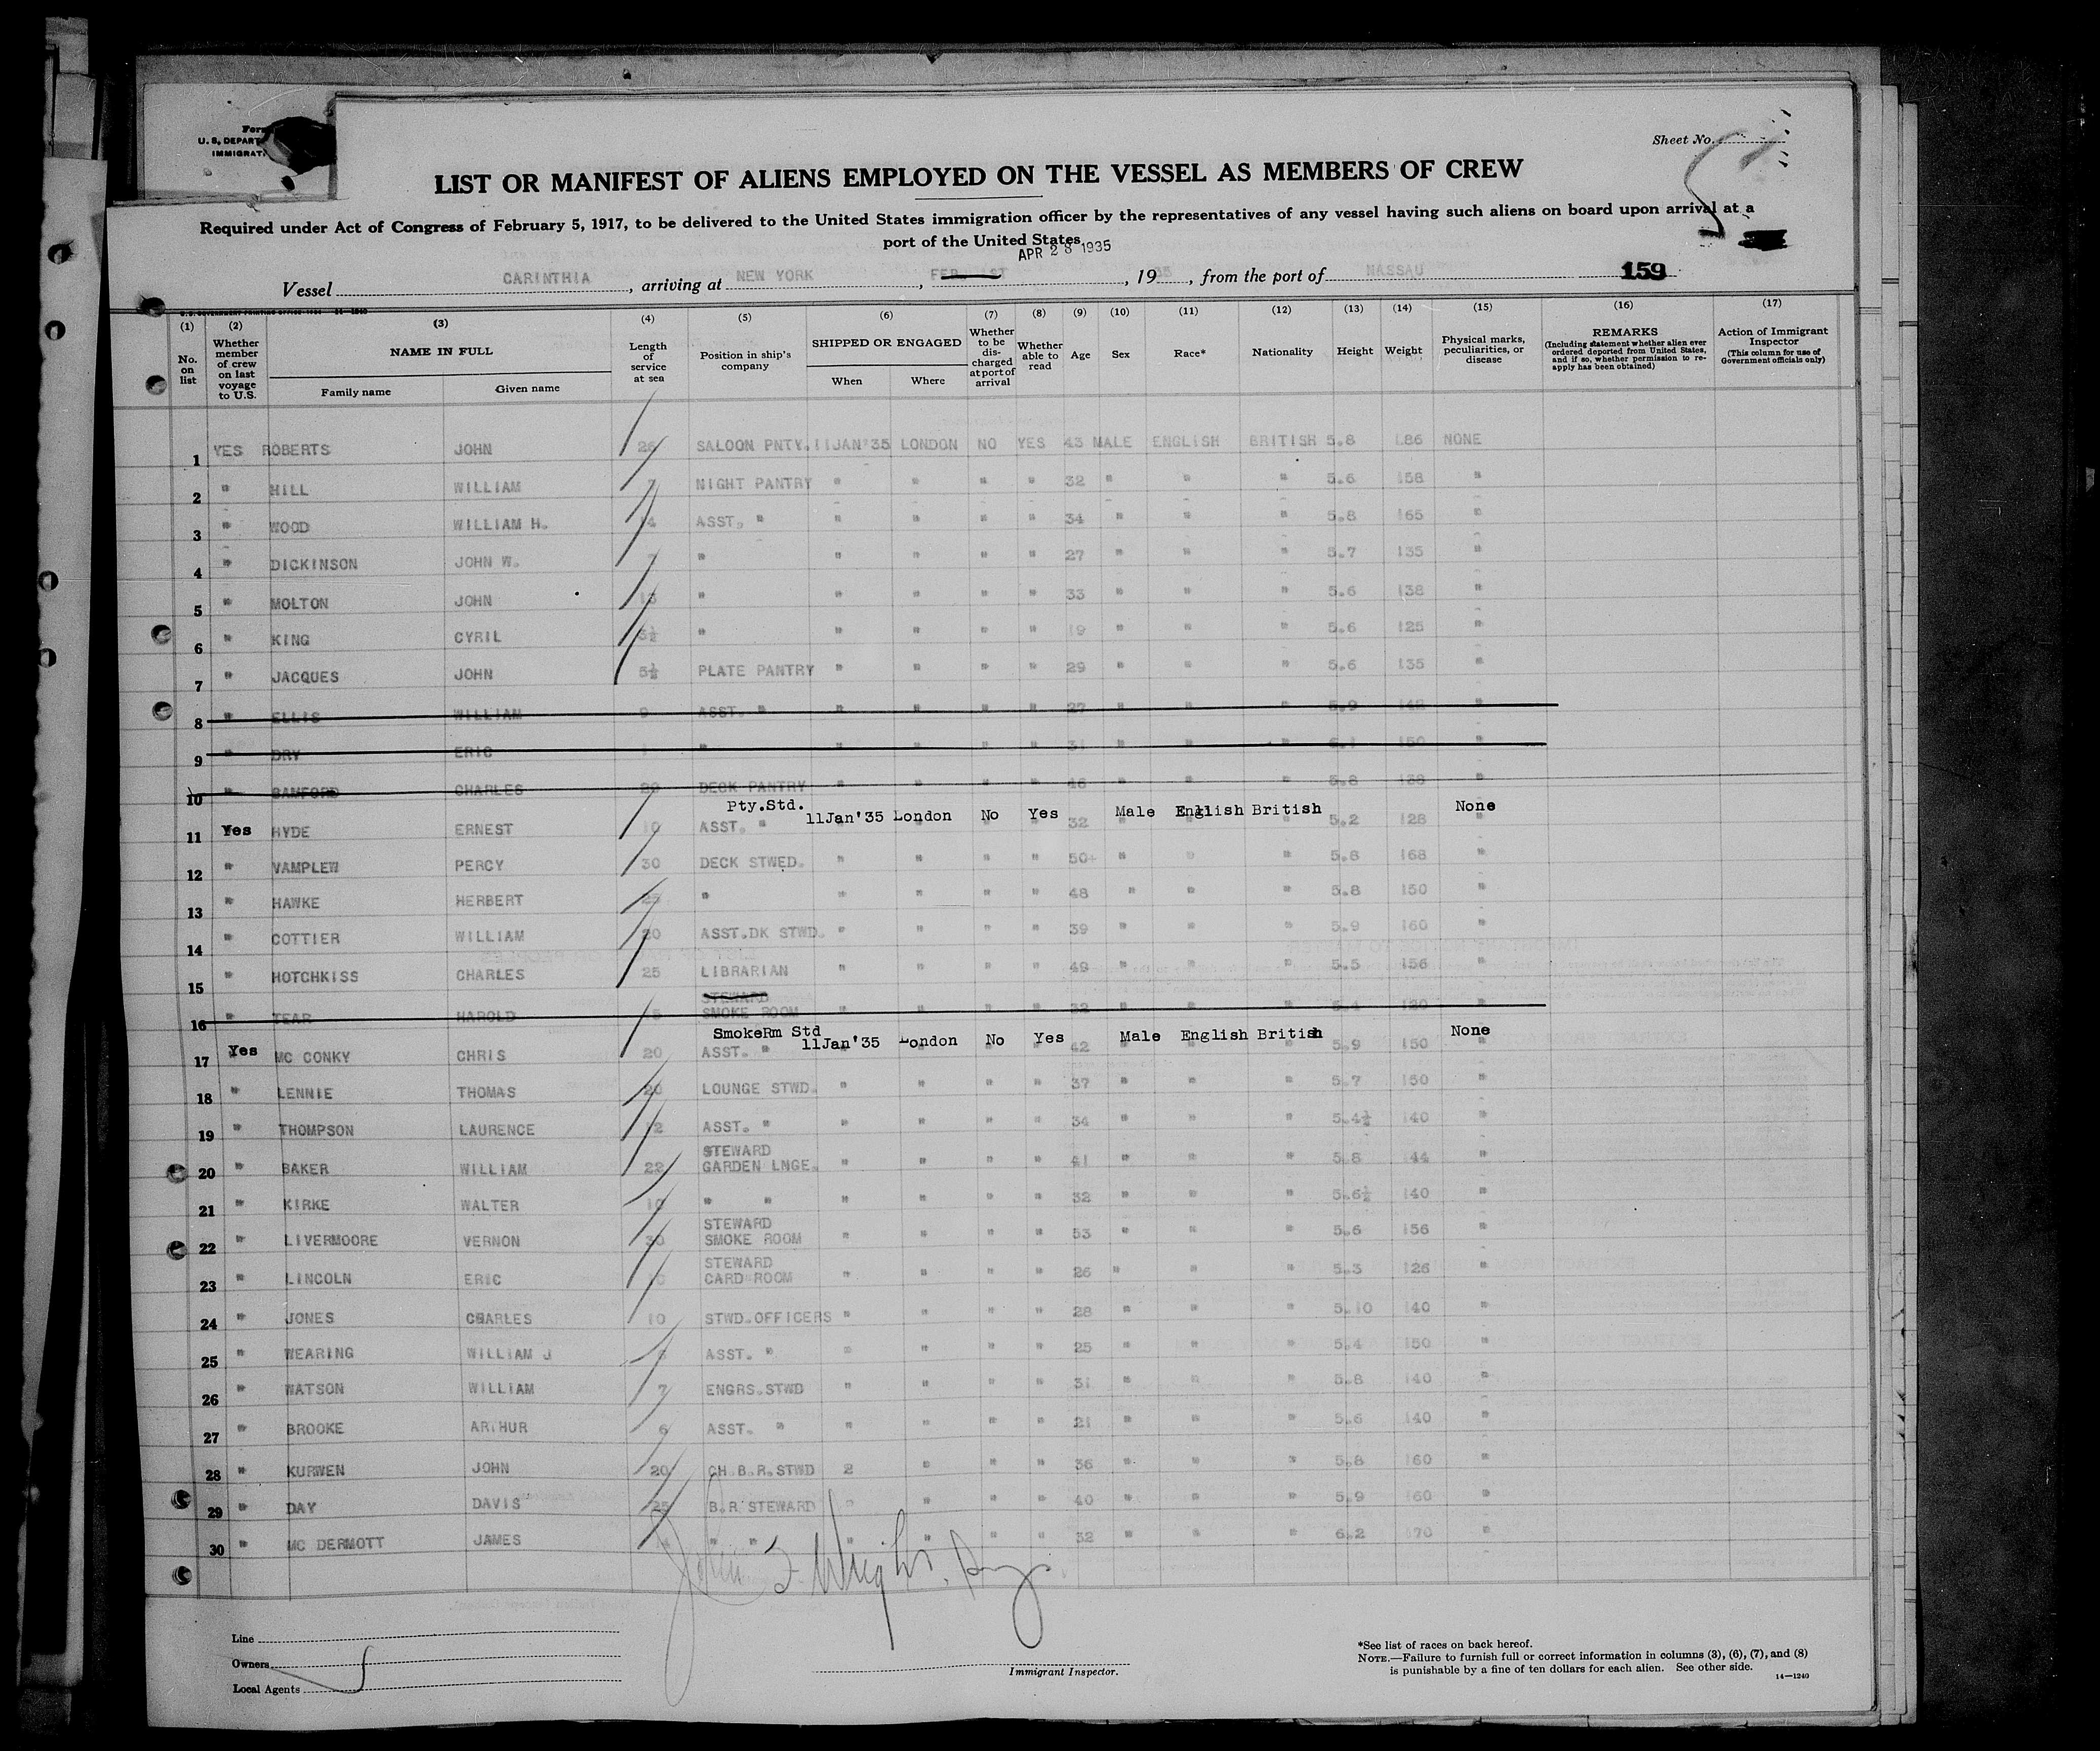 Form
U. S. DEPART
IMMIGRAT
Sheet No.
LIST OR MANIFEST OF ALIENS EMPLOYED ON THE VESSEL AS MEMBERS OF CREW
Required under Act of Congress of February 5, 1917, to be delivered to the United States immigration officer by the representatives of any vessel having such aliens on board upon arrival at a
port of the United States
APR 28 1935
Vessel CARINTHIA, arriving at NEW YORK, FEB. 1ST, 1935, from the port of NASSAU 159
(1) (2) (3) (4) (5) (6) (7) (8) (9) (10) (11) (12) (13) (14) (15) (16) (17)
No. on list
Whether member of crew on last voyage to U.S.
NAME IN FULL
Family name Given name
Length of service at sea
Position in ship's company
SHIPPED OR ENGAGED
When Where
Whether to be discharged at port of arrival
Whether able to read
Age
Sex
Race*
Nationality
Height
Weight
Physical marks, peculiarities, or disease
REMARKS
(Including statement whether alien ever ordered deported from United States, and if so, whether permission to re-apply has been obtained)
Action of Immigrant Inspector
(This column for use of Government officials only)
1 YES ROBERTS JOHN 26 SALOON PNTY. 11JAN'35 LONDON NO YES 43 MALE ENGLISH BRITISH 5.8 186 NONE
2 " HILL WILLIAM 7 NIGHT PANTRY " " " " 32 " " " 5.6 158 "
3 " WOOD WILLIAM H. 14 ASST. " " " " " 34 " " " 5.8 165 "
4 " DICKINSON JOHN W. 7 " " " " " 27 " " " 5.7 135 "
5 " MOLTON JOHN 13 " " " " " 33 " " " 5.6 138 "
6 " KING CYRIL 3½ " " " " " 19 " " " 5.6 125 "
7 " JACQUES JOHN 5½ PLATE PANTRY " " " " 29 " " " 5.6 135 "
8 " ELLIS WILLIAM 9 ASST. " " " " " 27 " " " 5.9 142 "
9 " DRY ERIC " " " " " 31 " " " 6.1 150 "
10 " BAMFORD CHARLES 20 DECK PANTRY " " " " 46 " " " 5.8 138 "
Pty.Std.
11 Yes HYDE ERNEST 10 ASST. " 11Jan'35 London No Yes 32 Male English British 5.2 128 None
12 " VAMPLEW PERCY 30 DECK STWED. " " " " 50 " " " 5.8 168 "
13 " HAWKE HERBERT 25 " " " " " 48 " " " 5.8 150 "
14 " COTTIER WILLIAM 20 ASST.DK STWD. " " " " 39 " " " 5.9 160 "
15 " HOTCHKISS CHARLES 25 LIBRARIAN " " " " 49 " " " 5.5 156 "
STEWARD
16 " TEAR HAROLD 15 SMOKE ROOM " " " " 32 " " " 5.4 130 "
SmokeRm Std
17 Yes MC CONKY CHRIS 20 ASST. " 11Jan'35 London No Yes 42 Male English British 5.9 150 None
18 " LENNIE THOMAS 20 LOUNGE STWD. " " " " 37 " " " 5.7 150 "
19 " THOMPSON LAURENCE 12 ASST. " " " " " 34 " " " 5.4½ 140 "
STEWARD
20 " BAKER WILLIAM 22 GARDEN LNGE. " " " " 41 " " " 5.8 144 "
21 " KIRKE WALTER 10 " " " " " " 32 " " " 5.6½ 140 "
STEWARD
22 " LIVERMOORE VERNON 30 SMOKE ROOM " " " " 53 " " " 5.6 156 "
STEWARD
23 " LINCOLN ERIC 10 CARD ROOM " " " " 26 " " " 5.3 126 "
24 " JONES CHARLES 10 STWD.OFFICERS " " " " 28 " " " 5.10 140 "
25 " WEARING WILLIAM J ASST. " " " " " 25 " " " 5.4 150 "
26 " WATSON WILLIAM 7 ENGRS.STWD " " " " 31 " " " 5.8 140 "
27 " BROOKE ARTHUR 6 ASST. " " " " " 21 " " " 5.6 140 "
28 " KURWEN JOHN 20 CH.B.R.STWD 2 " " " 36 " " " 5.8 160 "
29 " DAY DAVIS 25 B.R.STEWARD " " " " 40 " " " 5.9 160 "
30 " MC DERMOTT JAMES 14 " " " " " " 32 " " " 6.2 170 "
Line
Owners
Local Agents
Immigrant Inspector.
*See list of races on back hereof.
NOTE.—Failure to furnish full or correct information in columns (3), (6), (7), and (8)
is punishable by a fine of ten dollars for each alien. See other side.
14—1240